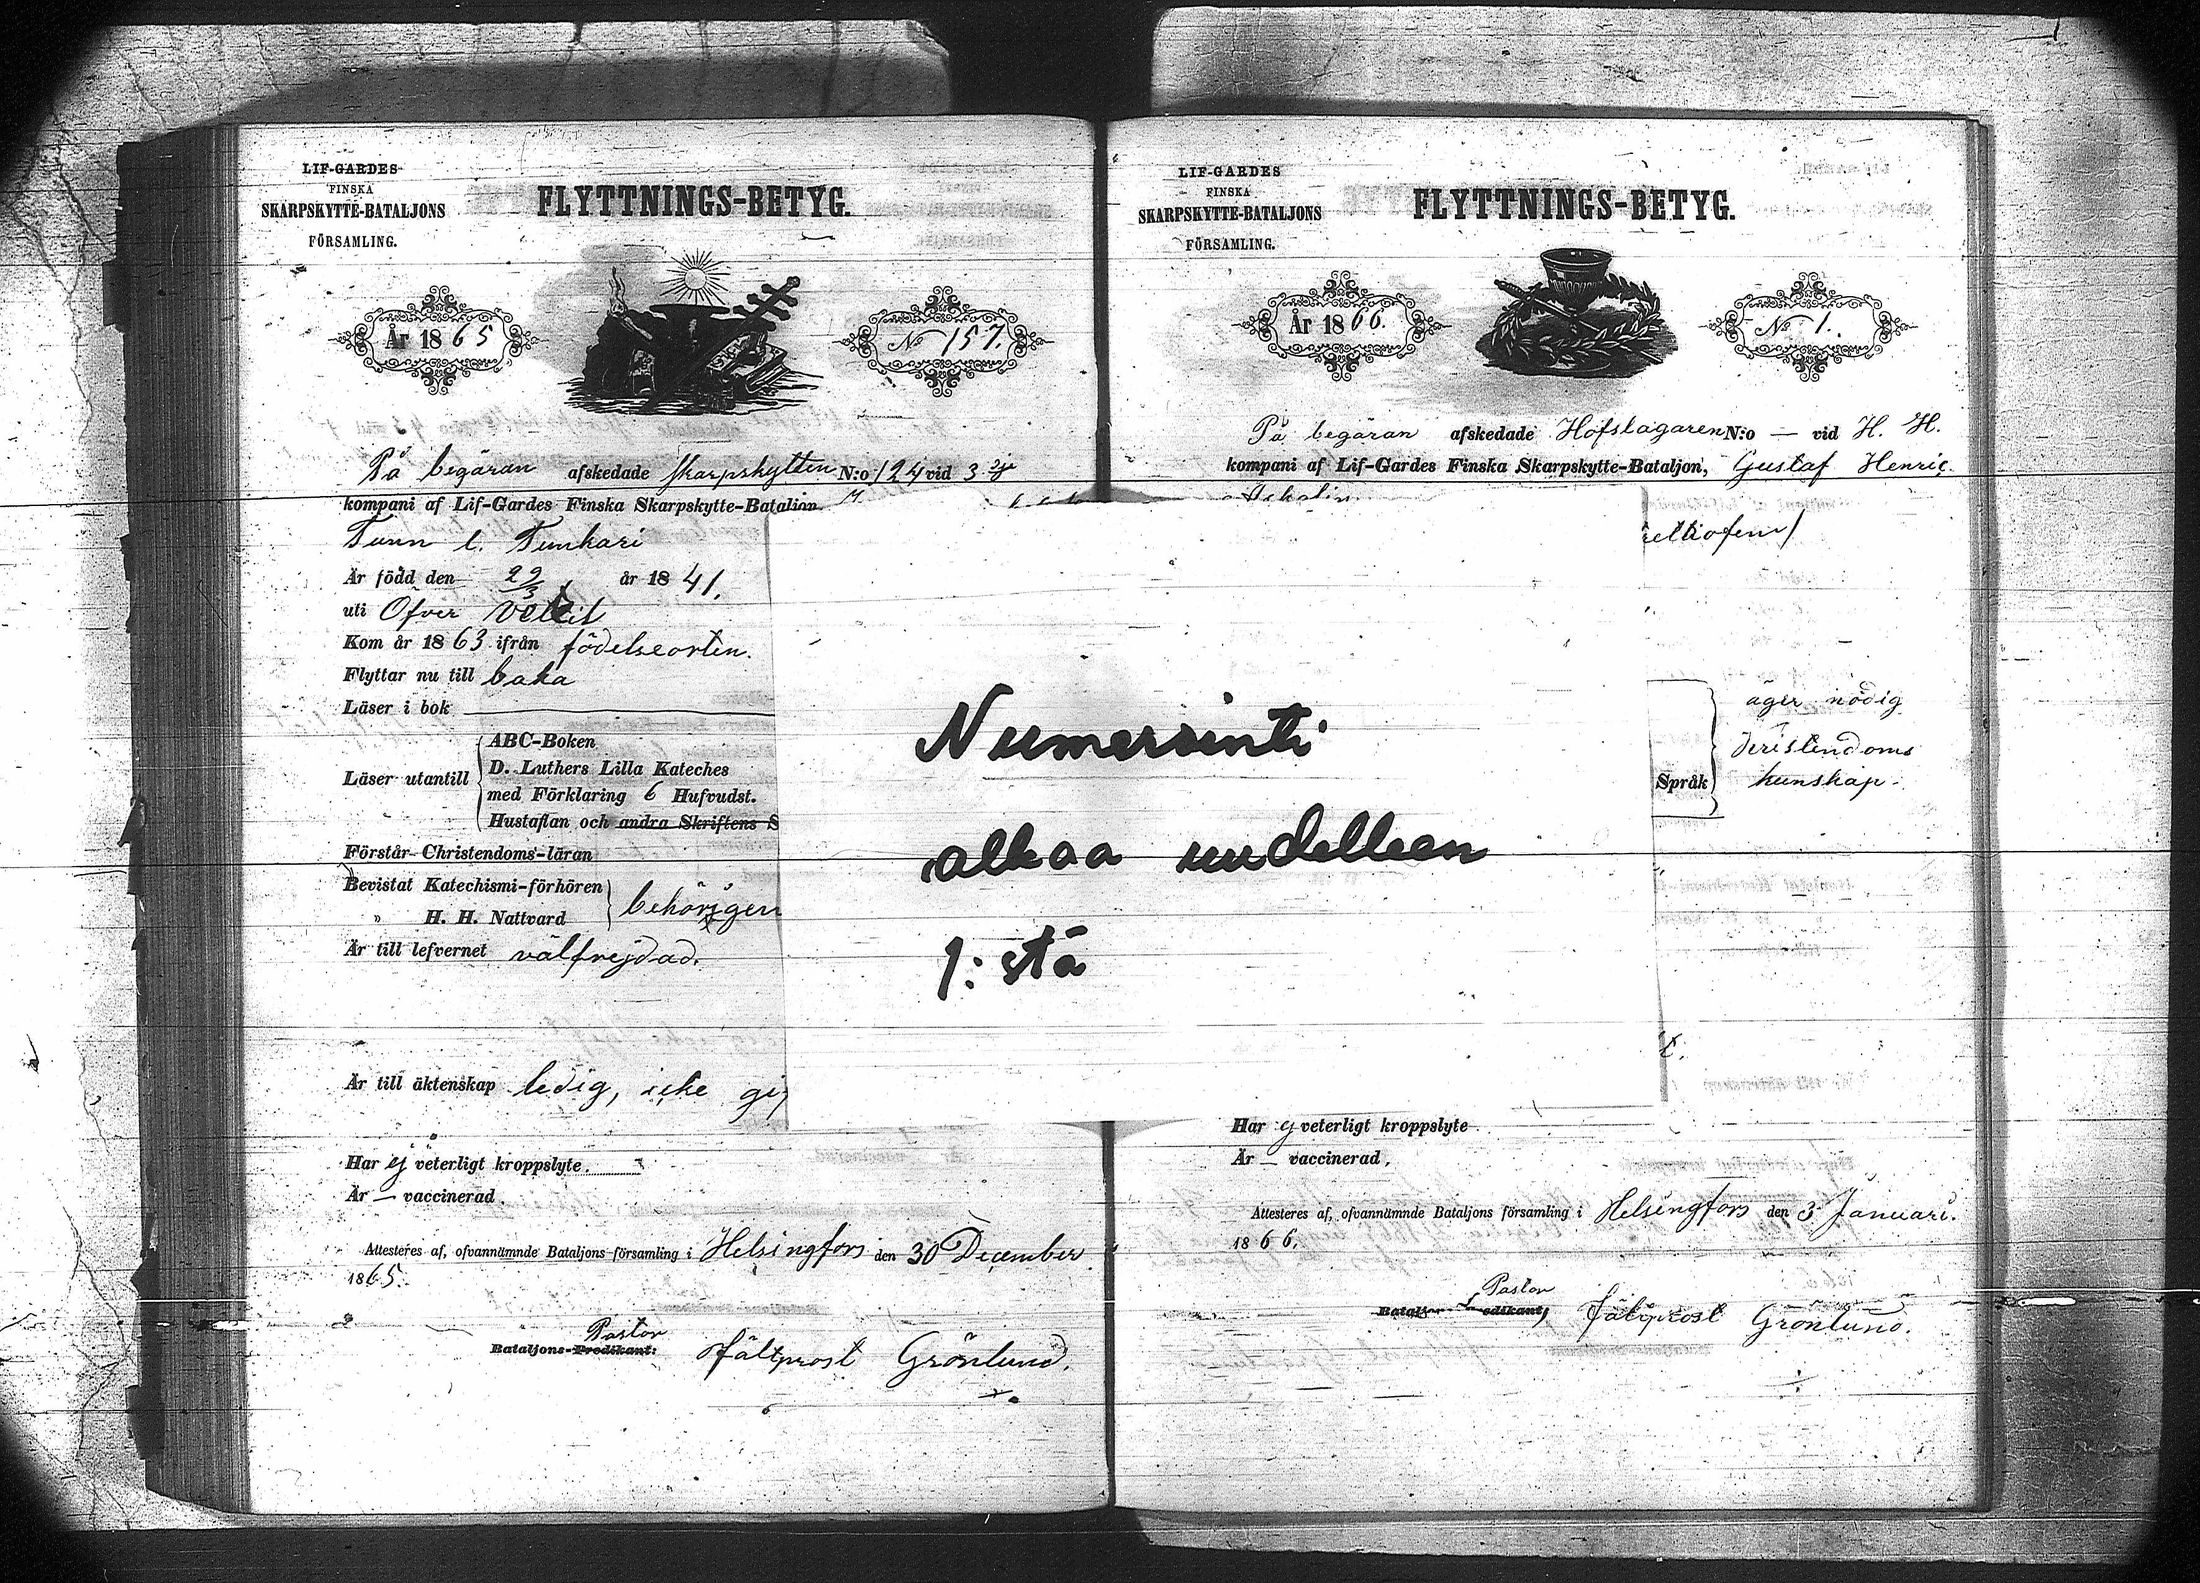 LIF-GARDES
FINSKA
SKARPSKYTTE-BATALJONS
FÖRSAMLING.
FLYTTNINGS-BETYG.
År 1865
No 157.
På begäran afskedade skarpskytten N:o 124 vid 3 je
kompani af Lif-Gardes Finska Skarpskytte-Bataljon
Tunkari
Är född den 29/3 år 1841.
uti Öfver Vetil
Kom år 1863 ifrån födelseorten.
Flyttar nu till baka
Läser i bok
Läser utantill
ABC-Boken
D. Luthers Lilla Kateches
med Förklaring 6 Hufvudst.
Hustaflan och andra Skriftens S
Förstår Christendoms-läran
Bevistat Katechismi-förhören
" H. H. Nattvard
behörigen
Är till lefvernet välfrejdad.
Är till äktenskap ledig, icke
Har ej veterligt kroppslyte.
Är — vaccinerad.
Attesteres af, ofvannämnde Bataljons församling i Helsingfors den 30 December
1865.
Pastor
Bataljons-Predikant:
Fältprost Grönlund.
Numerointi
alkaa uudelleen
1:stä
LIF-GARDES
FINSKA
SKARPSKYTTE-BATALJONS
FÖRSAMLING.
FLYTTNINGS-BETYG.
År 1866.
No 1.
På begäran afskedade Hofslagaren N:o — vid H. H.
kompani af Lif-Gardes Finska Skarpskytte-Bataljon, Gustaf Henric
Språk
äger nödig
kristendoms
kunskap.
Har ej veterligt kroppslyte
Är — vaccinerad.
Attesteres af, ofvannämnde Bataljons församling i Helsingfors den 3 Januari.
1866.
Pastor
Fältprost Grönlund.